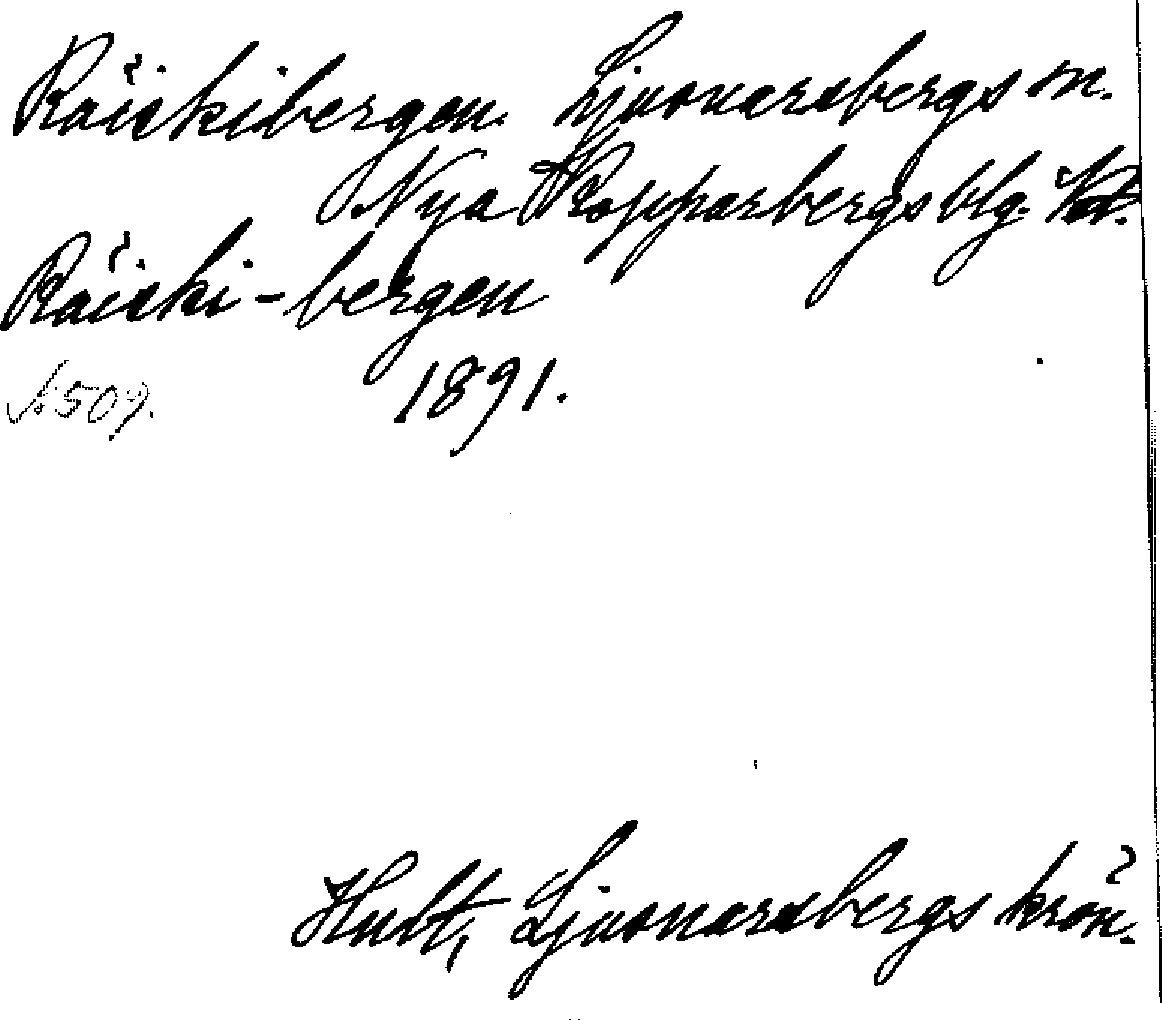 Räiskibergen. Ljusnarsbergs sn.
Nya Kopparbergs blg.
Räiski-bergen
N:509. 1891.
Hult, Ljusnarsbergs krön.